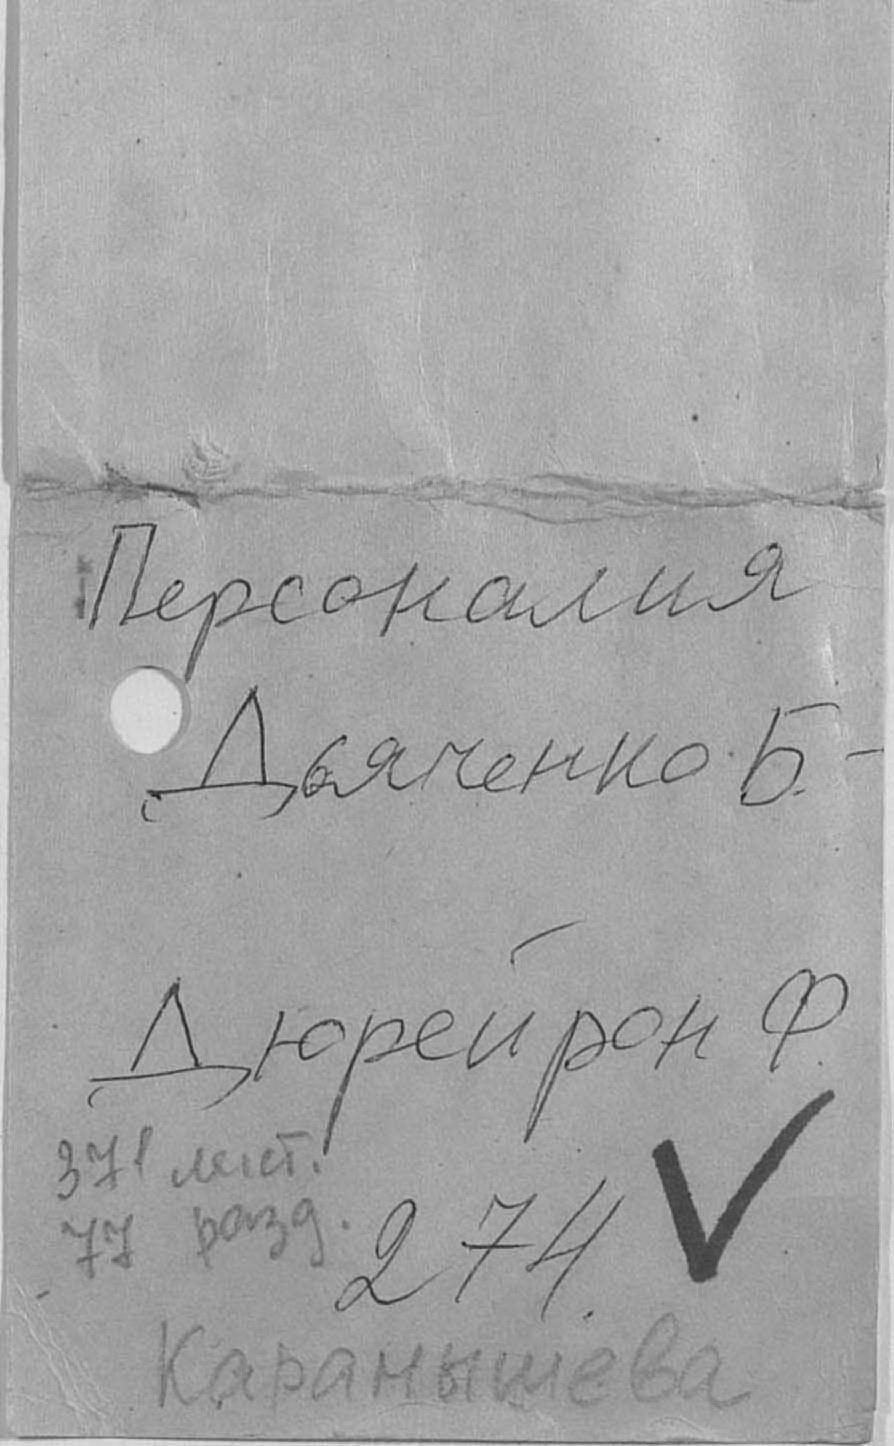 Персоналия
Дьяченко Б. -
Дюрейрон Ф.
371 лист.
77 разд.
274.
Карамышева